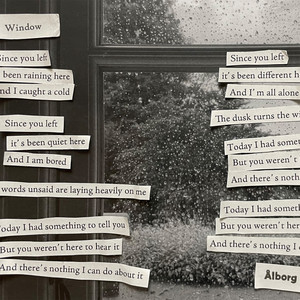 Window
Since you left
been raining here
And I caught a cold
Since you left
it's been quiet here
And I am bored
words unsaid are laying heavily on me
Today I had something to tell you
But you weren't here to hear it
And there's nothing I can do about it
Since you left
it's been different
And I'm all alone
The dusk turns the
Today I had
But you weren't
And there's
Today I had
But you weren't
And there's nothing I
Alborg